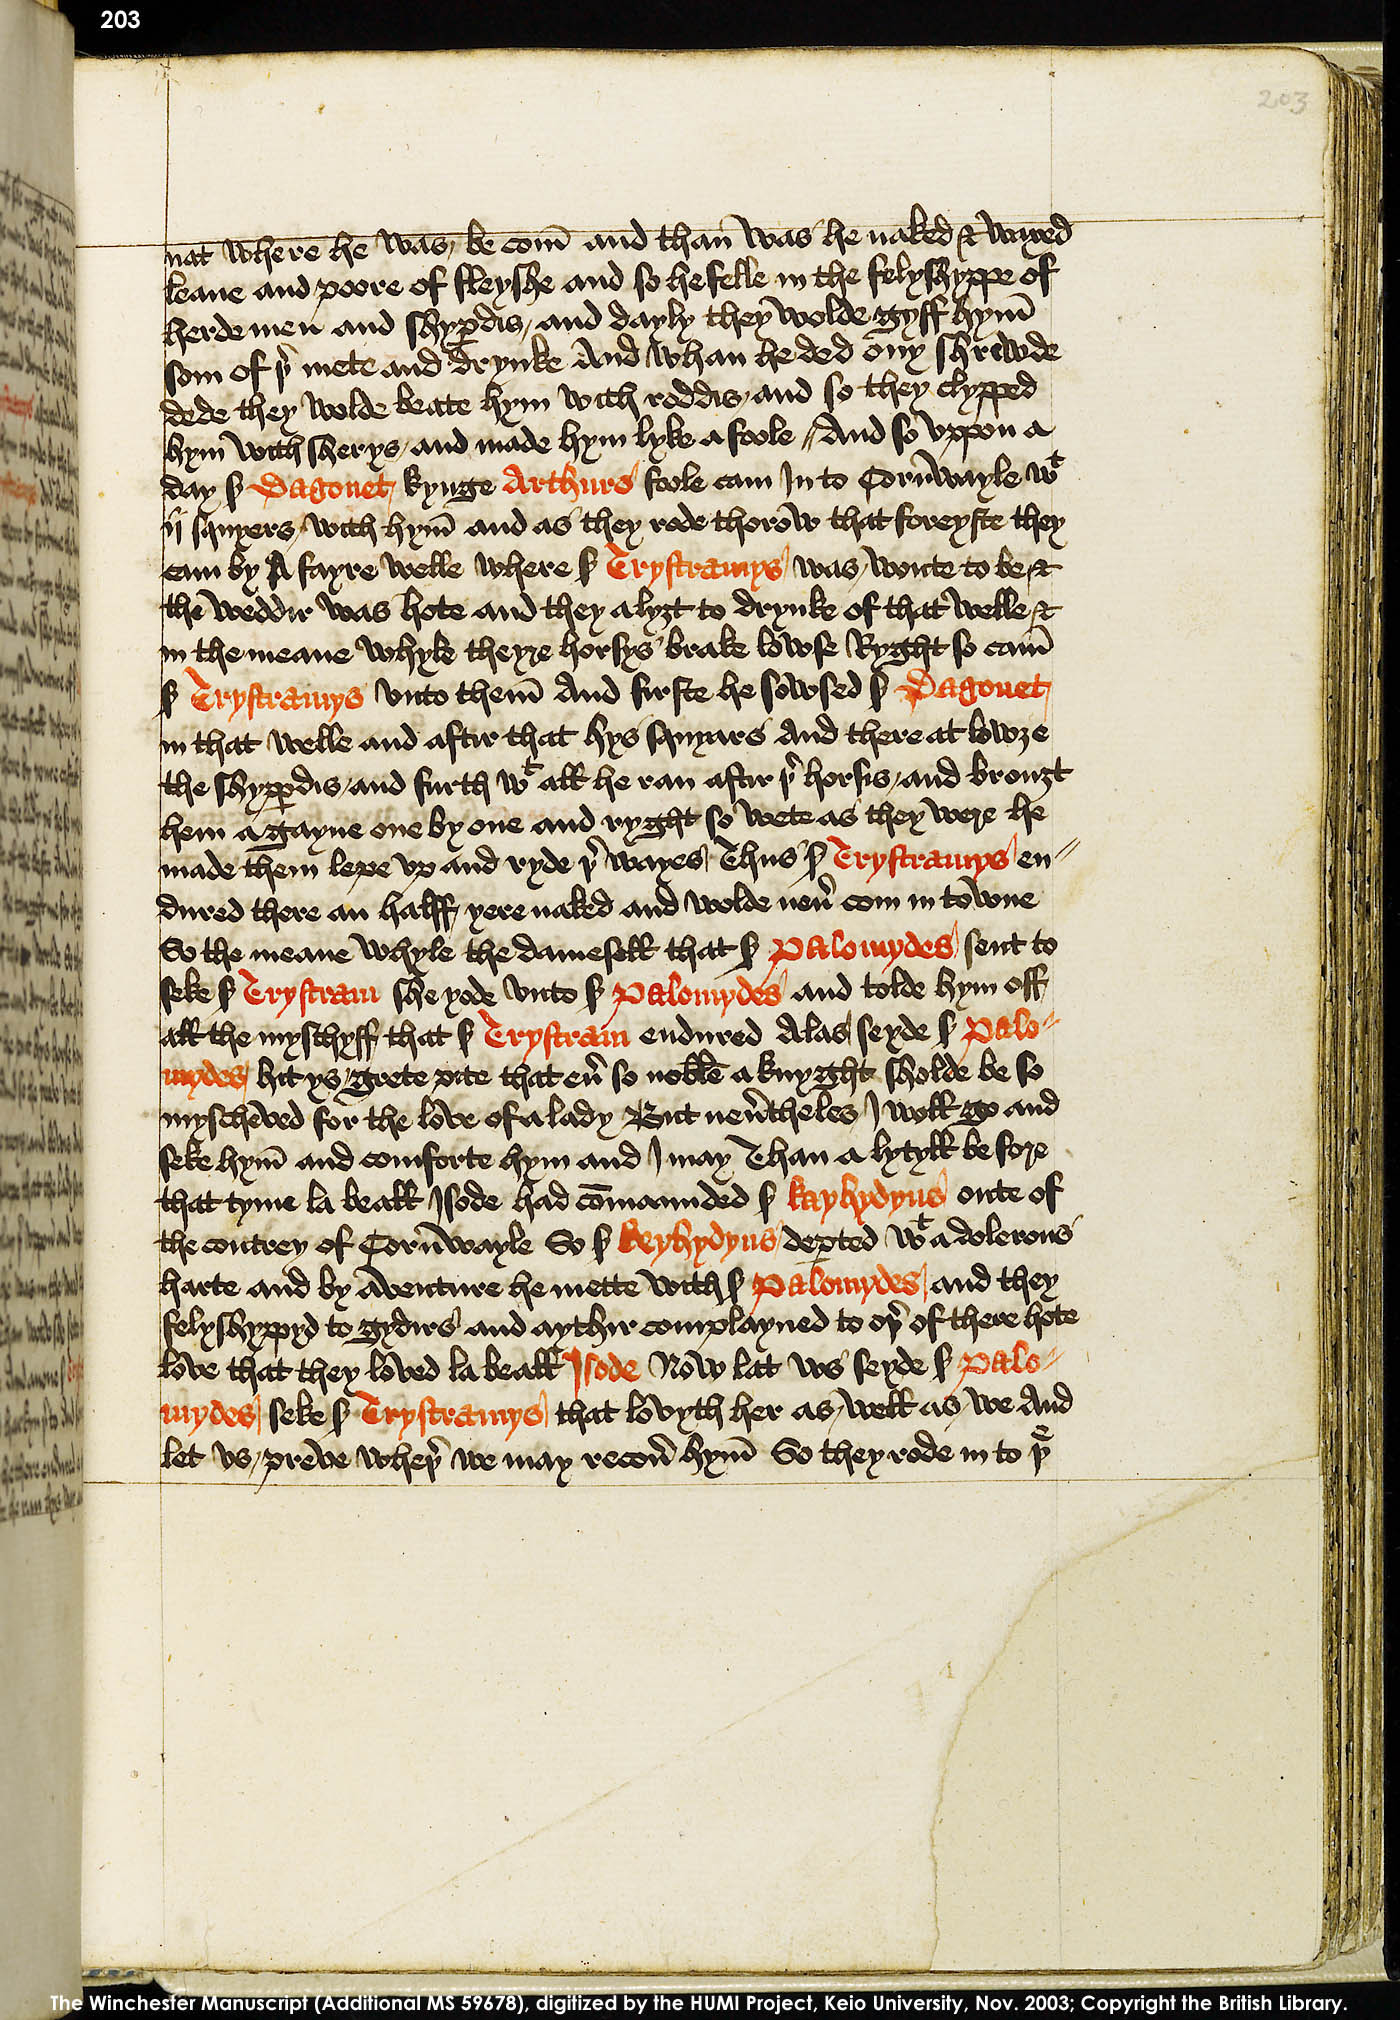 203
203
nat where he was be com̄ and than̄ was he naked & waxed
leane and poore of fleyshe and so he felle in the felyshyppe of
herde men and shyꝑdis / and dayly they wolde gyff hym̄
som of þʳ mete and drynke And whan he ded ony shrewde
dede they wolde beate hym with roddis / and so they clypped
hym̄ with sherys / and made hym lyke a foole // And so vppon a
day ẜ Dagonet kynge Arthurs foole cam In to Corn̄wayle wᵗ
ij squyers / with hym̄ and as they rode thorow that foreyste they
cam by A fayre welle where ẜ Trystramys was wonte to be &
the weddir was hote and they alyȝt to drynke of that welle &
in the meane whyle theyre horsys brake lowse Ryght so cam̄
ẜ Trystramys vnto them̄ And firste he sowsed ẜ Dagonet
in that welle and aftir that hys squyars And there at lowȝe
the shyꝑdis / and furth wᵗ all he ran aftir þʳ horsis / and brouȝt
hem a gayne one by one and ryght so wete as they were he
made them lepe vp and ryde þʳ wayes Thus ẜ Trystramys en //
dured there an halff yere naked and wolde neuͬ com in towne
So the meane whyle the damesell that ẜ Palomydes sent to
seke ẜ Trystram she yode vnto ẜ Palomydes and tolde hym off
all the myschyff that ẜ Trystram endured Alas seyde ẜ Palo //
mydes hit ys grete pite that euͬ so noble a knyght sholde be so
myscheved for the love of a lady But neuͬtheles I woll go and
seke hym̄ and comforte hym and I may Than a lytyll be fore
that tyme la beall Isode had cōmaunded ẜ kayhydyus oute of
the contrey of Corn̄wayle So ẜ keyhydyus deꝑted wᵗ a dolerous
harte and by aventure he mette with ẜ Palomydes and they
felyshyppyd to gydirs and aythir complayned to oþʳ of there hote
love that they loved la beall Isode Now lat vs seyde ẜ Palo //
mydes seke ẜ Trystramys that lovyth her as well as we And
let vs / preve wheþʳ we may recouͬ hym̄ So they rode in to þᵉ
The Winchester Manuscript (Additional MS 59678), digitized by the HUMI Project, Keio University, Nov. 2003; Copyright the British Library.